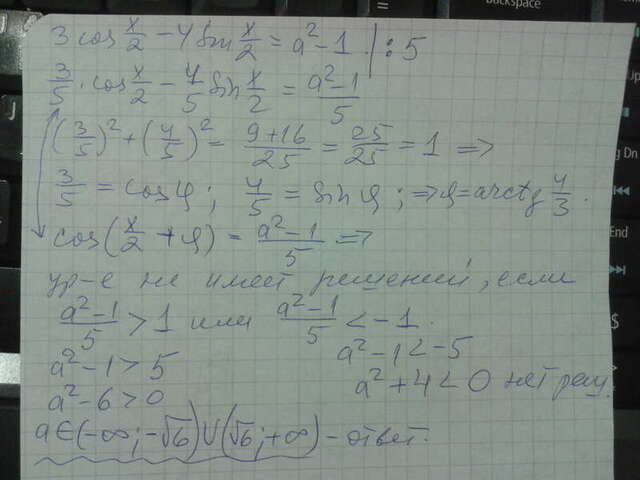 backspace
=
3 cos x/2 − 4 sin x/2 = a² − 1 | : 5
3/5 · cos x/2 − 4/5 sin x/2 = (a² − 1)/5
(3/5)² + (4/5)² = (9+16)/25 = 25/25 = 1 =>
3/5 = cos φ; 4/5 = sin φ; => φ = arctg 4/3.
cos(x/2 + φ) = (a² − 1)/5 =>
ур-е не имеет решений, если
(a² − 1)/5 > 1 или (a² − 1)/5 < −1.
a² − 1 > 5
a² − 1 < −5
a² − 6 > 0
a² + 4 < 0 нет реш.
a ∈ (−∞; −√6) ∪ (√6; +∞) − ответ.
J
Dn
End
$